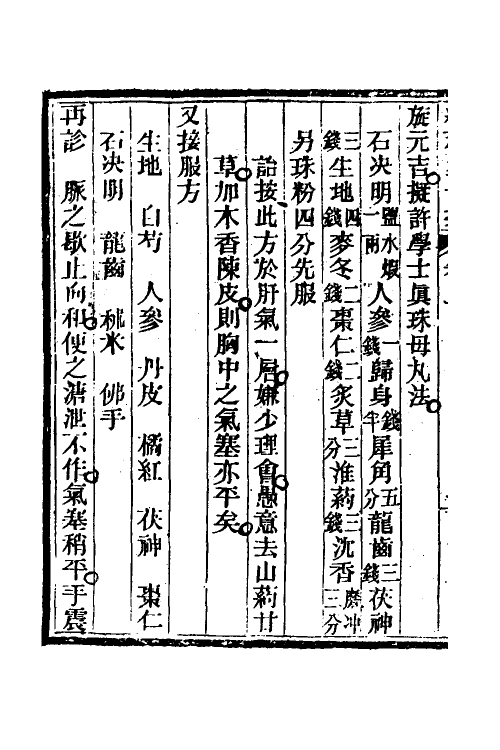 旋元吉擬許學士眞珠母丸法
石决明鹽水煆一兩人參一錢歸身錢半犀角五分龍齒三錢茯神
三錢生地四錢麥冬二錢棗仁二錢炙草三分淮藥三錢沉香磨冲三分
另珠粉四分先服
詒按此方於肝氣一層嫌少理會愚意去山藥甘
草加木香陳皮則胸中之氣塞亦平矣
又接服方
生地 白芍 人參 丹皮 橘紅 茯神 棗仁
石决明 龍齒 秫米 佛手
再診 脈之歇止向和便之溏泄不作氣塞稍平手震